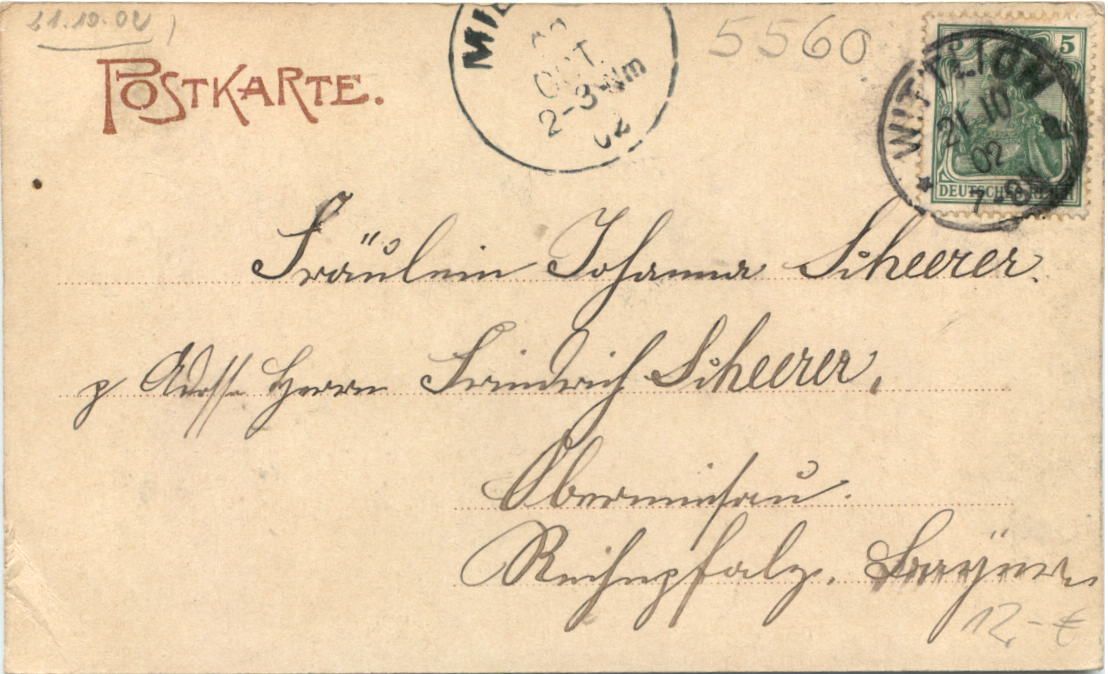 21.10.02
5560
POSTKARTE.
OCT
2-3 Nm
02
5
DEUTSCHES REICH
WITTLICH
21 10
02
7-8
Fräulein Johanna Scheerer.
p Adresse Herrn Friedrich Scheerer,
Obermiesau.
Rheinpfalz. Bayern
12,- €